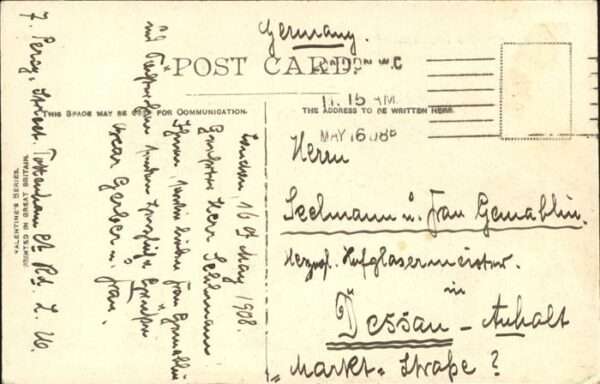 Germany.
POST CARD.
LONDON W.C
11.15 AM
MAY 16 08
THIS SPACE MAY BE USED FOR COMMUNICATION.
THE ADDRESS TO BE WRITTEN HERE.
London, 16 May 1908.
Herr Seelmann
Ihnen, Frau Gemahlin
und
Oscar Gerber u. Frau.
7. Percy Street. Tottenham Ct Rd. L. W.
Herrn
Seelmann u. Frau Gemahlin.
Herzogl. Hofglasermeister.
in
Dessau - Anhalt
"Markt" Straße?
VALENTINE'S SERIES.
PRINTED IN GREAT BRITAIN.